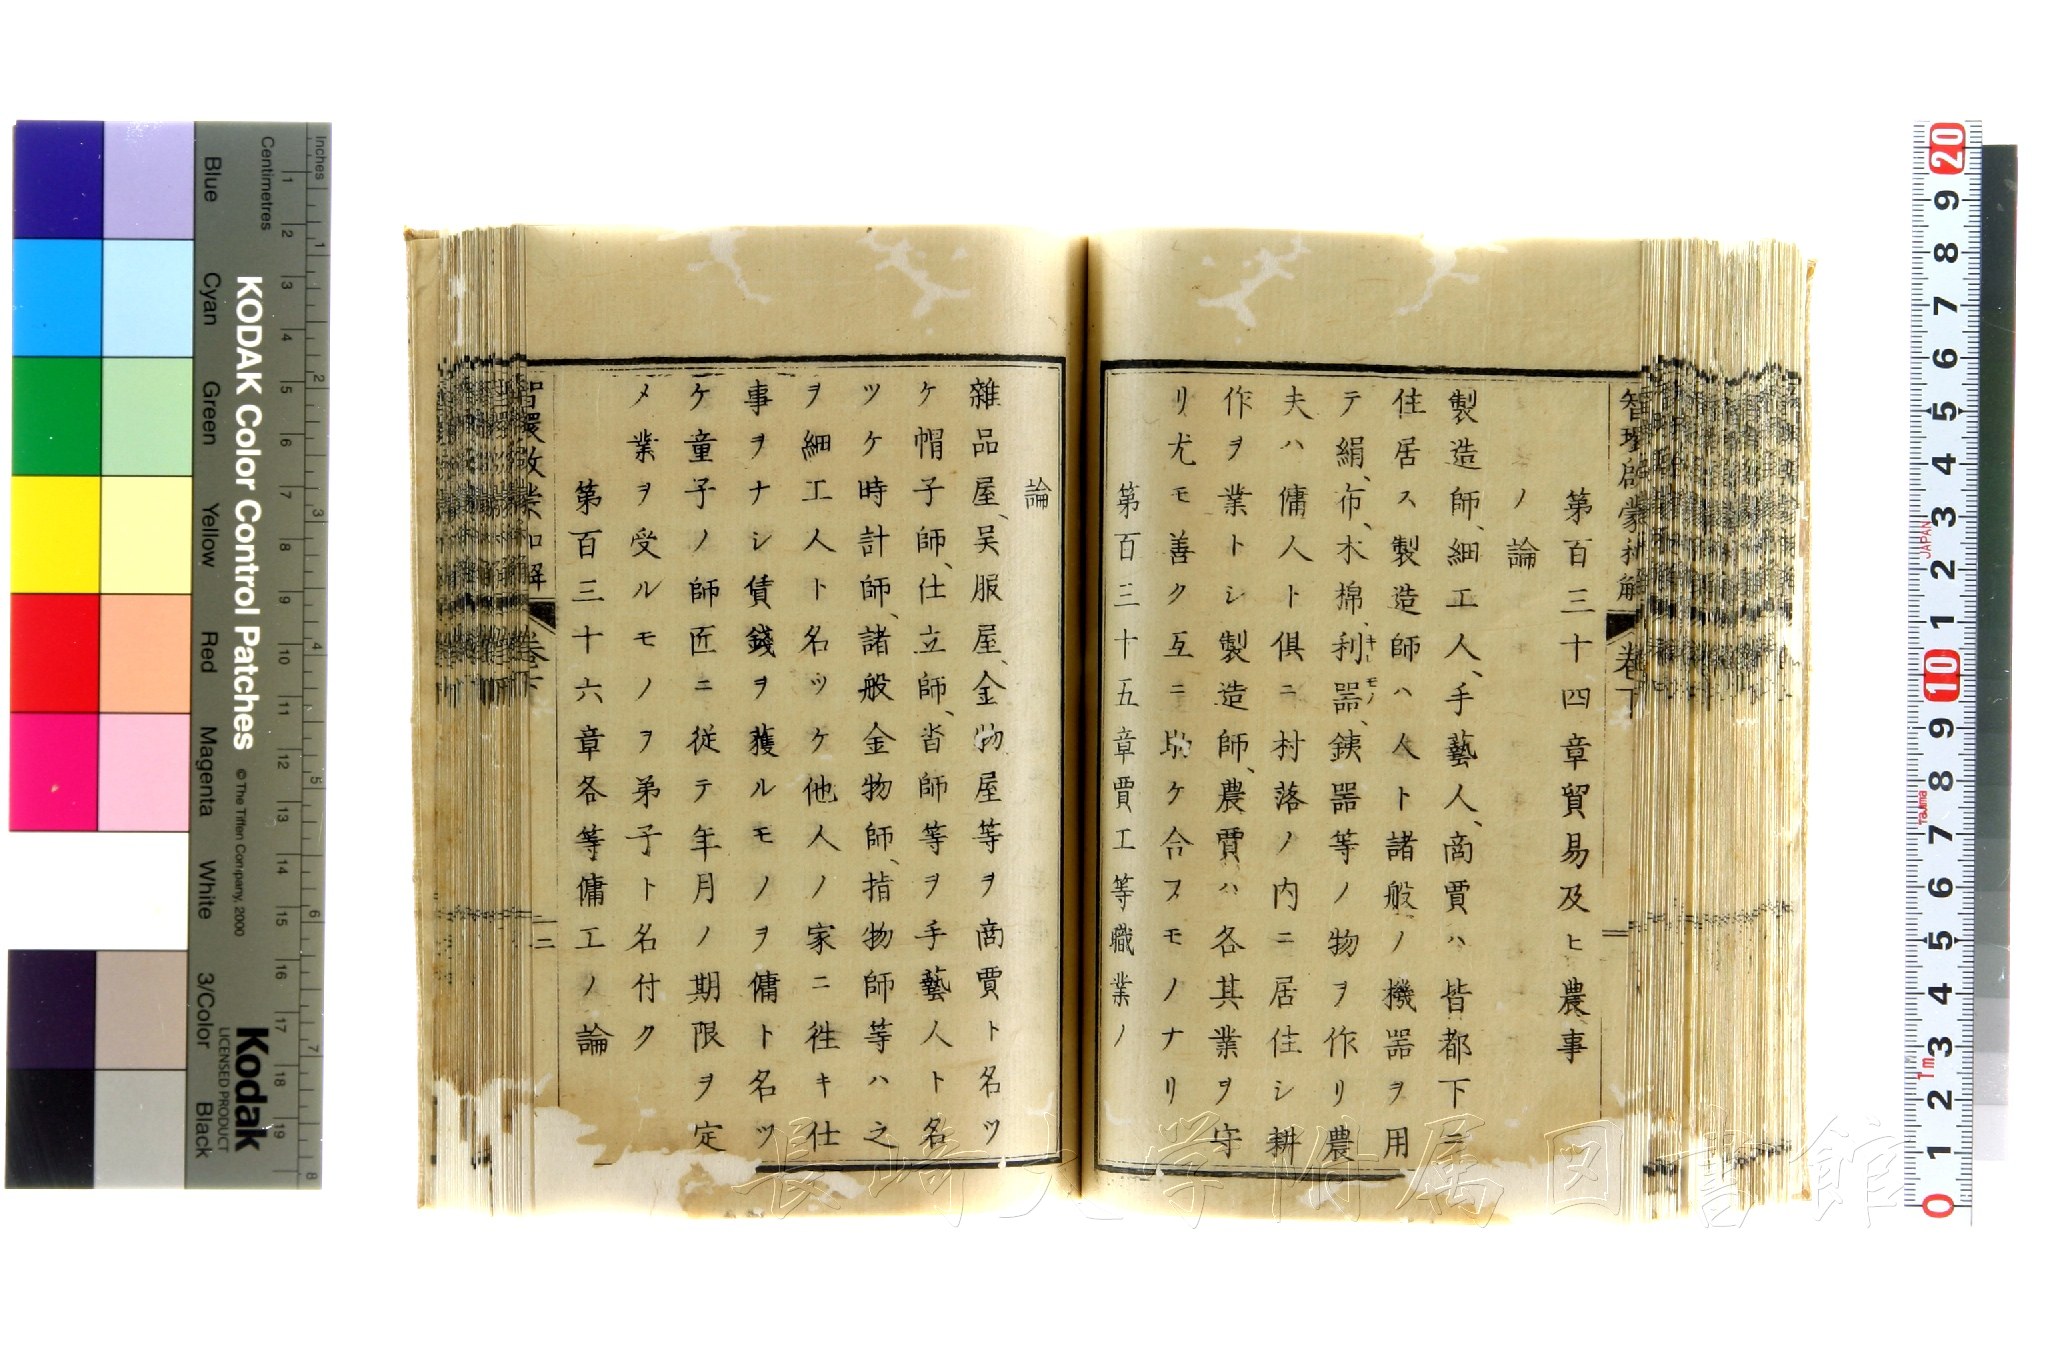 智環啓蒙和解 卷下
第百三十四章貿易及ヒ農事
ノ論
製造師、細工人、手藝人、商賈ハ皆都下ニ
住居ス製造師ハ人ト諸般ノ機器ヲ用
テ絹、布、木棉、利器、銕器等ノ物ヲ作リ農
キレモノ
夫ハ傭人ト倶ニ村落ノ内ニ居住シ耕
作ヲ業トシ製造師、農賈ハ各其業ヲ守
リ尤モ善ク互ニ助ケ合フモノナリ
第百三十五章賈工等職業ノ
論
雜品屋、吴服屋、金物屋等ヲ商賈ト名ツ
ケ帽子師、仕立師、沓師等ヲ手藝人ト名
ツケ時計師、諸般金物師、指物師等ハ之
ヲ細工人ト名ツケ他人ノ家ニ徃キ仕
事ヲナシ賃錢ヲ獲ルモノヲ傭ト名ツ
ケ童子ノ師匠ニ従テ年月ノ期限ヲ定
メ業ヲ受ルモノヲ弟子ト名付ク
第百三十六章各等傭工ノ論
智環啓蒙和解 卷下 二
長崎大学附属図書館
KODAK Color Control Patches
© The Tiffen Company, 2000
Kodak
LICENSED PRODUCT
Inches
1 2 3 4 5 6 7 8
Centimetres
1 2 3 4 5 6 7 8 9 10 11 12 13 14 15 16 17 18 19
Blue Cyan Green Yellow Red Magenta White 3/Color Black
20 9 8 7 6 5 4 3 2 1 10 9 8 7 6 5 4 3 2 1 0
JAPAN
Tajima
Tm